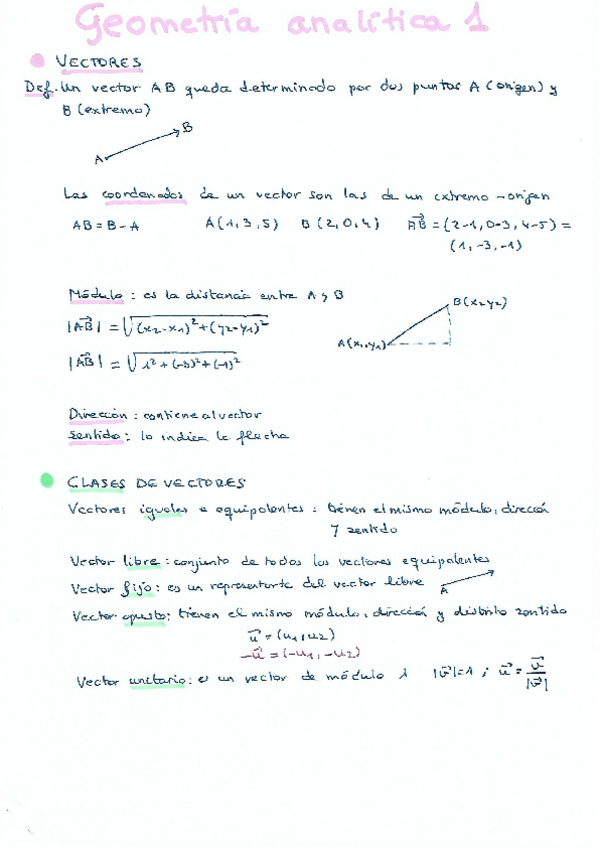 Geometría analítica 1
VECTORES
Def. Un vector AB queda determinado por dos puntos A (origen) y
B (extremo)
B
A
Las coordenadas de un vector son las de un extremo - origen
AB = B - A A(1,3,5) B(2,0,4) AB⃗ = (2-1, 0-3, 4-5) =
(1, -3, -1)
Módulo: es la distancia entre A y B
B(x₂y₂)
|AB⃗| = √(x₂-x₁)²+(y₂-y₁)²
A(x₁,y₁)
|AB⃗| = √1²+(-3)²+(-1)²
Dirección: contiene al vector
Sentido: lo indica la flecha
CLASES DE VECTORES
Vectores iguales o equipolentes: tienen el mismo módulo, dirección
y sentido
Vector libre: conjunto de todos los vectores equipolentes
Vector fijo: es un representante del vector libre
A
Vector opuesto: tienen el mismo módulo, dirección y distinto sentido
u⃗ = (u₁, u₂)
-u⃗ = (-u₁, -u₂)
Vector unitario: es un vector de módulo 1 |v⃗|=1 ; u⃗ = v⃗/|v⃗|